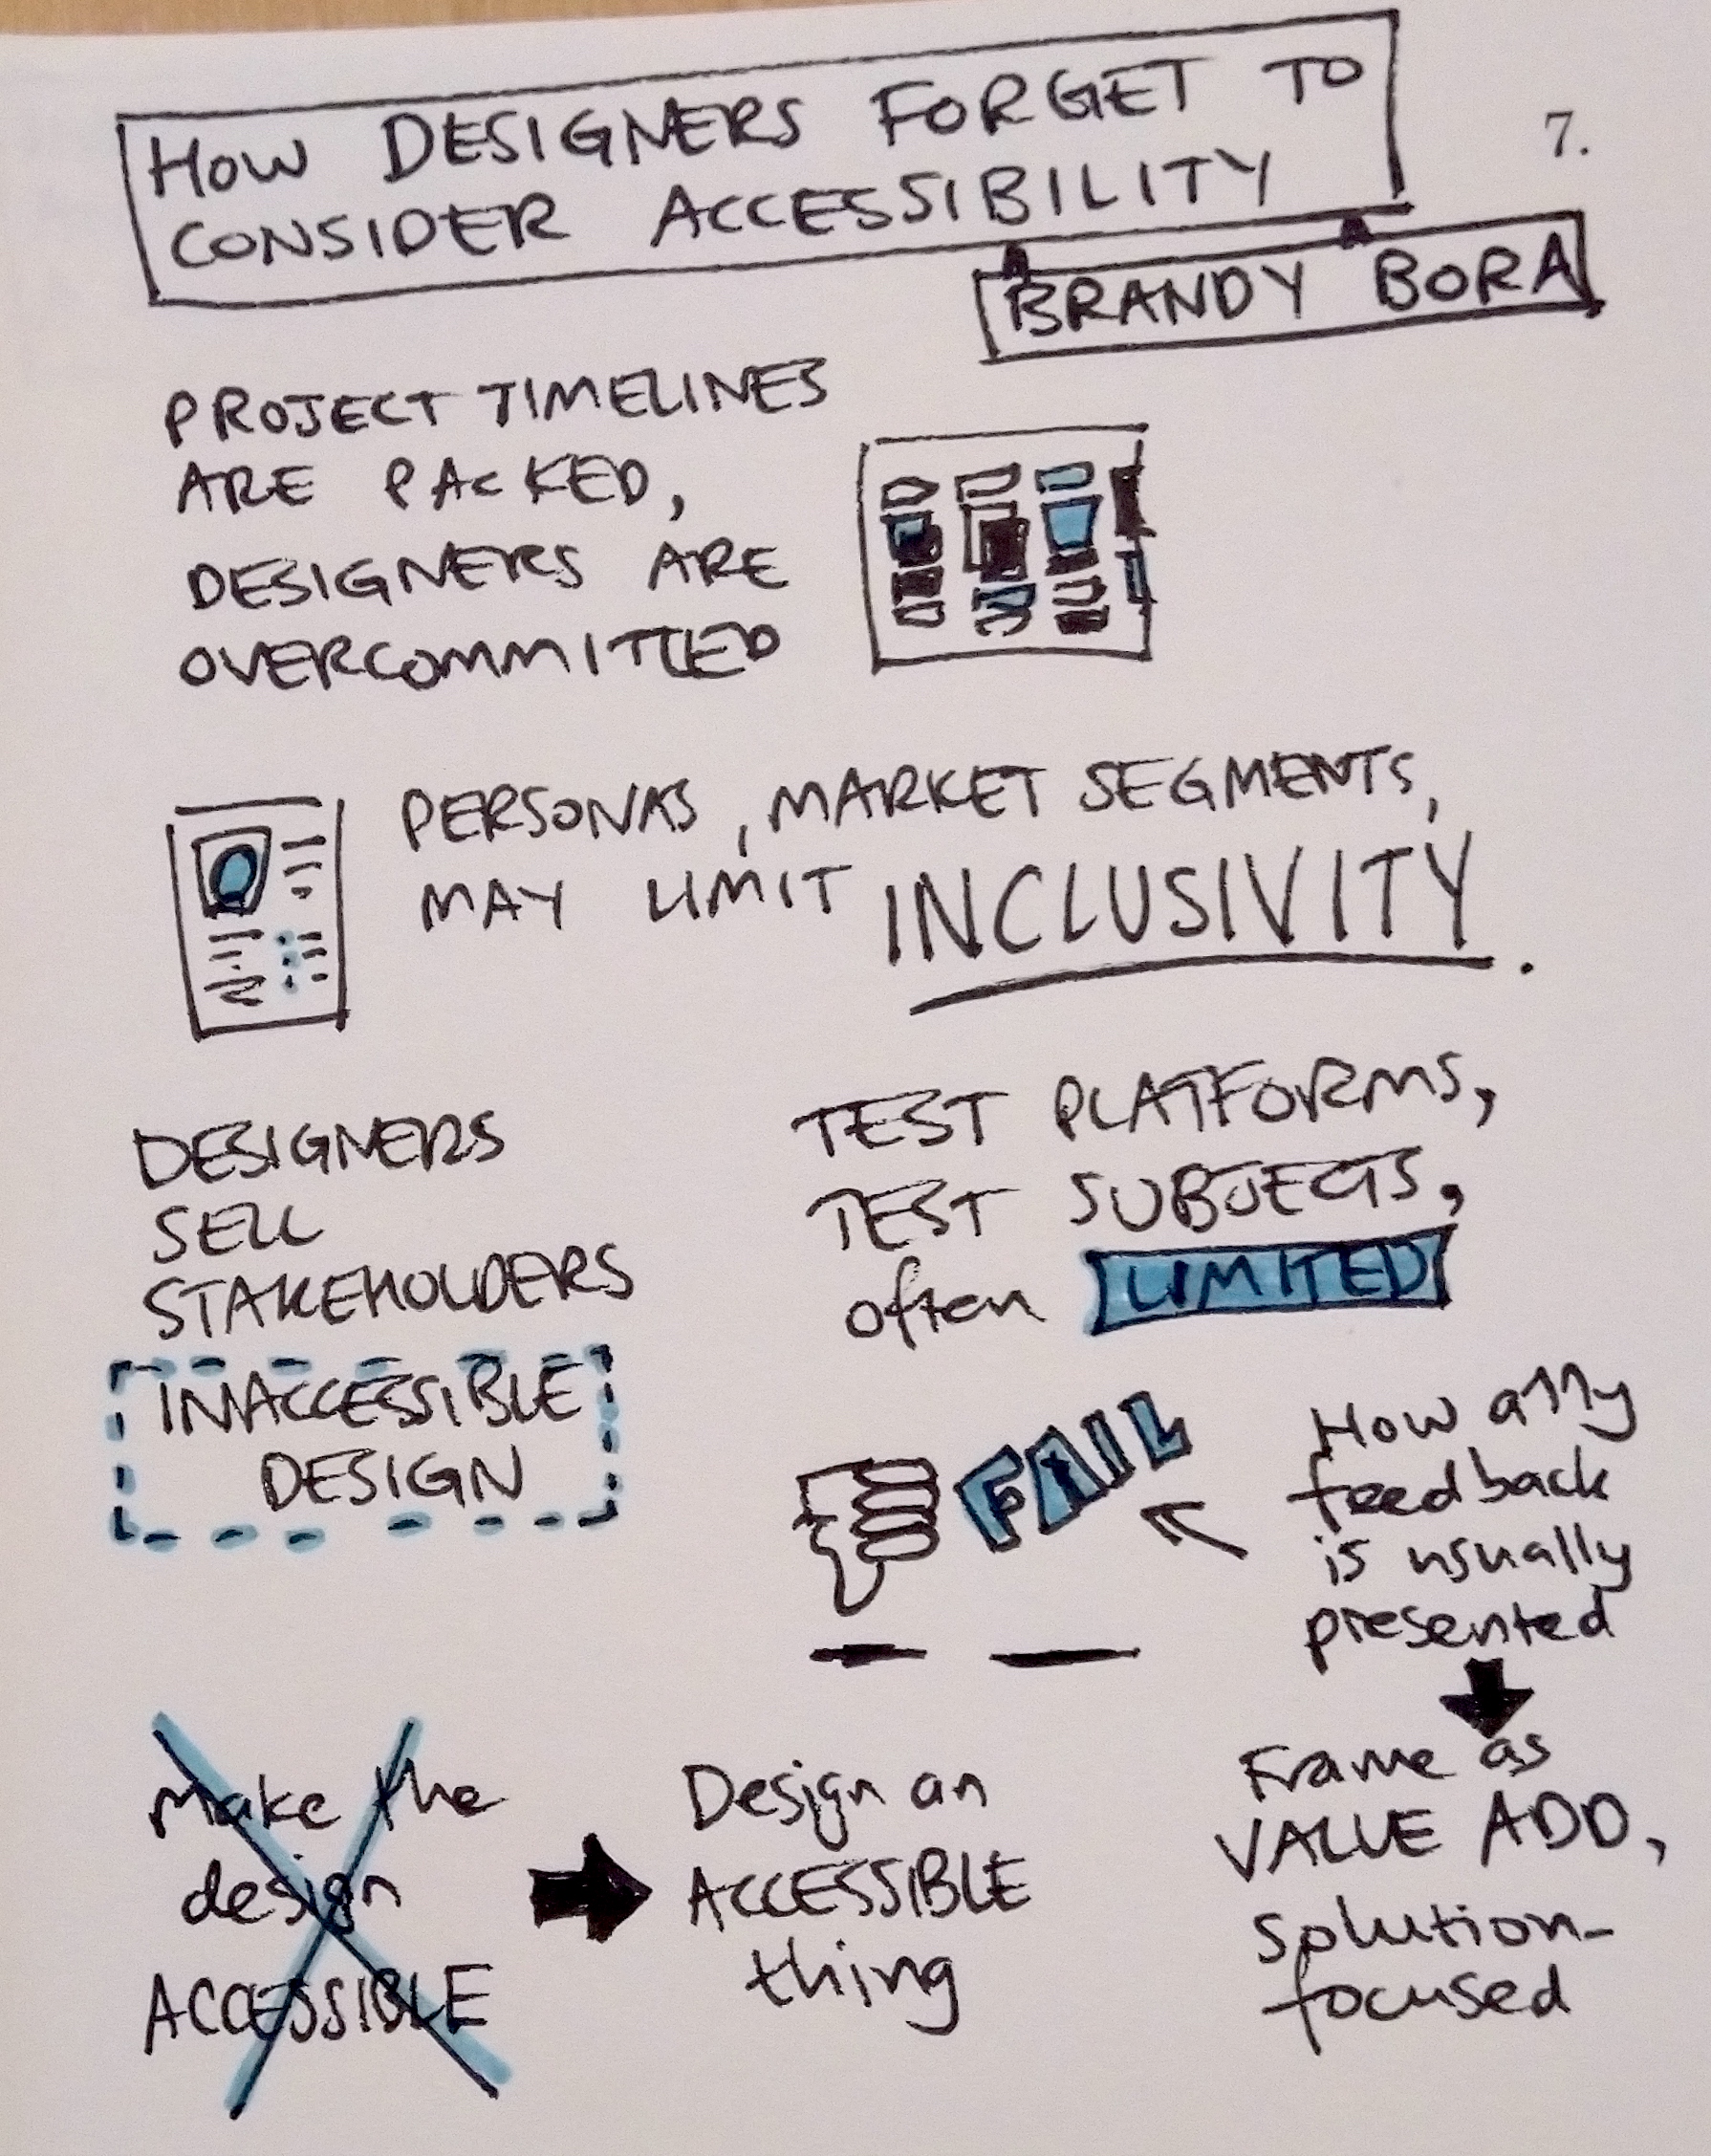 HOW DESIGNERS FORGET TO
CONSIDER ACCESSIBILITY
7.
BRANDY BORA
PROJECT TIMELINES
ARE PACKED,
DESIGNERS ARE
OVERCOMMITTED
PERSONAS, MARKET SEGMENTS,
MAY LIMIT INCLUSIVITY.
DESIGNERS
SELL
STAKEHOLDERS
INACCESSIBLE
DESIGN
TEST PLATFORMS,
TEST SUBJECTS,
often LIMITED
FAIL
How a11y
feedback
is usually
presented
Frame as
VALUE ADD,
solution-
focused
Make the
design
ACCESSIBLE
Design an
ACCESSIBLE
thing